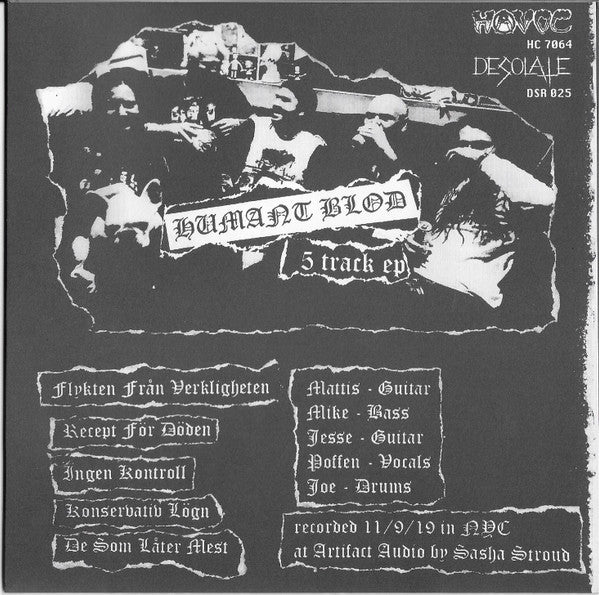 HAVOC
HC 7064
DESOLATE
DSR 025
HUMANT BLOD
5 track ep
Flykten Från Verkligheten
Recept För Döden
Ingen Kontroll
Konservativ Lögn
De Som Låter Mest
Mattis - Guitar
Mike - Bass
Jesse - Guitar
Poffen - Vocals
Joe - Drums
recorded 11/9/19 in NYC
at Artifact Audio by Sasha Stroud